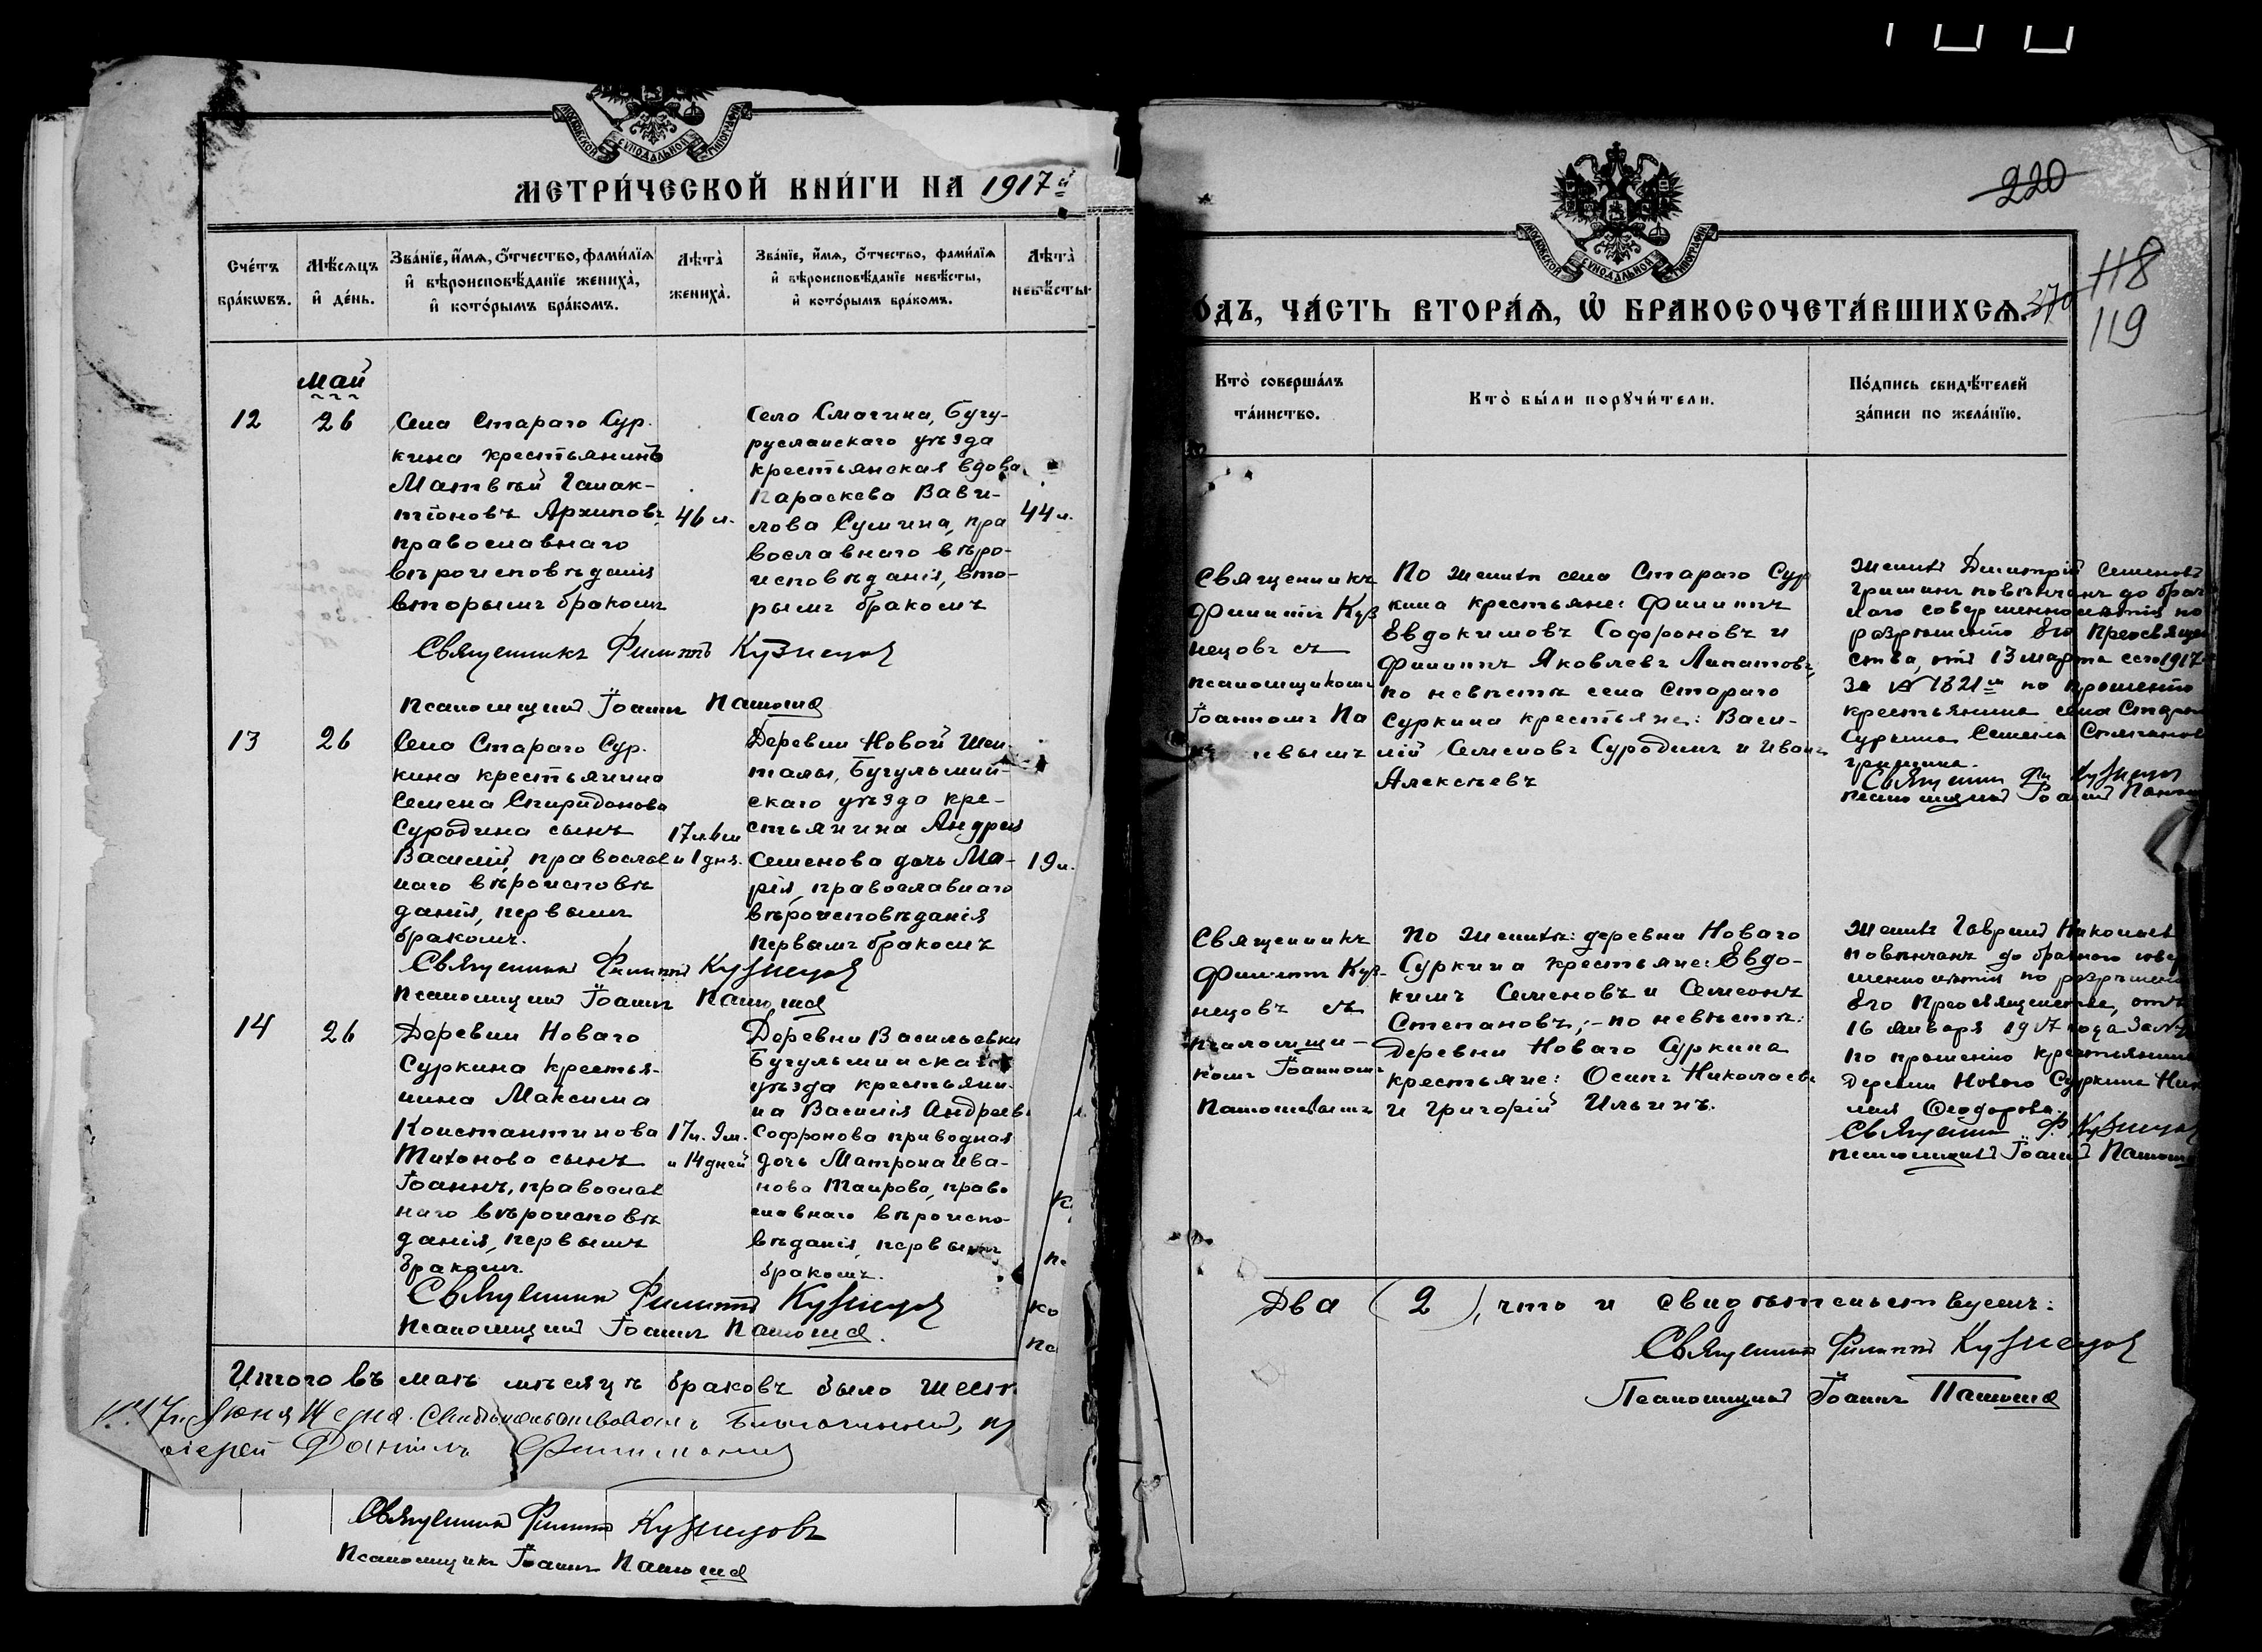 МОСКОВСКОЙ СУНОДАЛЬНОЙ ТИПОГРАФІИ
МЕТРИ́ЧЕСКОЙ КНИ́ГИ НА 1917й
Сче́тъ бра́кωвъ.
Мѣ́сяцъ и҆ де́нь.
Зва́нїе, и҆́мѧ, ѻ҆́тчество, фами́лїѧ
и҆ вѣроисповѣ́данїе жениха̀,
и҆ кото́рымъ бра́комъ.
Лѣ́та̀ жениха̀.
Зва́нїе, и҆́мѧ, ѻ҆́тчество, фами́лїѧ
и҆ вѣроисповѣ́данїе невѣ́сты,
и҆ кото́рымъ бра́комъ.
Лѣ́та̀ невѣ́сты
Май
12
26
Села Стараго Сур-
кина крестьянинъ
Матвѣй Галак-
тіоновъ Архиповъ
православнаго
вѣроисповѣданія
вторымъ бракомъ
46 л.
Села Смагина, Бугу-
русланскаго уѣзда
крестьянская вдова
Параскева Вави-
лова Сумина, пра
вославнаго вѣро-
исповѣданія, вто-
рымъ бракомъ
44 л.
Священникъ Филиппъ Кузнецовъ
Псаломщикъ Іоаннъ
13
26
Села Стараго Сур-
кина крестьянина
Семена Спиридонова
Суродина сынъ
Василій, православ
наго вѣроисповѣ
данія, первымъ
бракомъ.
17 л. 6 м.
и 1 дня.
Деревни Новой Шен-
талы, Бугульмин-
скаго уѣзда кре-
стьянина Андрея
Семенова дочь Ма-
рія, православнаго
вѣроисповѣданія
первымъ бракомъ
19 л.
Священникъ Филиппъ Кузнецовъ
Псаломщикъ Іоаннъ
14
26
Деревни Новаго
Суркина крестья-
нина Максима
Константинова
Тихонова сынъ
Іоаннъ, православ
наго вѣроисповѣ
данія, первымъ
бракомъ.
17 л. 9 м.
и 14 дней
Деревни Васильевки
Бугульминска
уѣзда крестьяни-
на Василія Андреев
Софронова приводная
дочь Матрона Ива-
нова Таирова, право
славнаго вѣроиспо-
вѣданія, первымъ
бракомъ.
Священникъ Филиппъ Кузнецовъ
Псаломщикъ Іоаннъ
Итого въ маѣ мѣсяцѣ браковъ было шест
Іюня дня. Благочинный, пр
оіерей Даніилъ
Священникъ Филиппъ Кузнецовъ
Псаломщикъ Іоаннъ
МОСКОВСКОЙ СУНОДАЛЬНОЙ ТИПОГРАФІИ
220
370
118
119
О́ДЪ, ЧА́СТЬ ВТОРА́Ѧ, Ѽ БРАКОСОЧЕТА́ВШИХСѦ.
Кто̀ соверша́лъ
та́инство.
Кто̀ бы́ли порꙋчи́тели.
По́дпись свидѣ́телей
за́писи по жела́нїю.
Священникъ
Филиппъ Куз
нецовъ съ
псаломщикомъ
Іоанномъ Па
евымъ
По женихѣ села Стараго Сур
кина крестьяне: Филиппъ
Евдокимовъ Софроновъ и
Филиппъ Яковлевъ Липатовъ;
по невѣстѣ села Стараго
Суркина крестьяне: Васи-
лій Семеновъ Суродинъ и Иванъ
Алексѣевъ
Женихъ Димитрій Семеновъ
Гришинъ повѣнчанъ до брач
наго совершеннолѣтія по
разрѣшенію Его Преосвящен
ства, отъ 13 марта сего 1917
за № 1321 по прошенію
крестьянина села Стараго
Суркина Семена Степанова
Гришина.
Священникъ Фи Кузнецовъ
псаломщикъ Іоаннъ
Священникъ
Филиппъ Куз-
нецовъ съ
псаломщи-
комъ Іоанномъ
По женихѣ: деревни Новаго
Суркина крестьяне: Евдо-
кимъ Семеновъ и Семеонъ
Степановъ; - по невѣстѣ:
деревни Новаго Суркина
крестьяне: Осипъ Николаевъ
и Григорій Ильинъ.
Женихъ Гавріилъ Николаев
повѣнчанъ до брачного совер
шеннолѣтія по разрѣшенію
Его Преосвященства, отъ
16 января 1917 года за №
по прошенію крестьянина
деревни Новаго Суркина Ник
лая Ѳеодорова.
Священникъ Ф. Кузнецовъ
псаломщикъ Іоаннъ
Два (2), что и свидѣтельствуемъ:
Священникъ Филиппъ Кузнецовъ
Псаломщикъ Іоаннъ